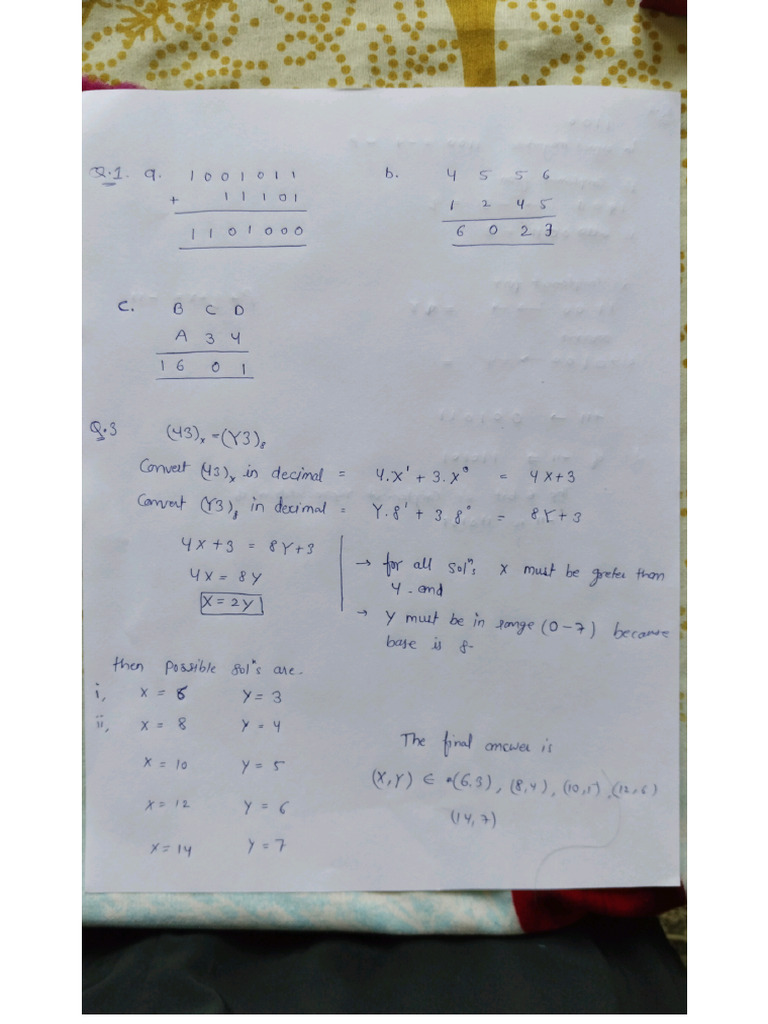 Q.1. a. 1 0 0 1 0 1 1
+ 1 1 1 0 1
1 1 0 1 0 0 0
b. 4 5 5 6
1 2 4 5
6 0 2 3
c. B C D
A 3 4
1 6 0 1
Q.3 (43)ₓ = (Y3)₈
Convert (43)ₓ in decimal = 4.X¹ + 3.X⁰ = 4X+3
Convert (Y3)₈ in decimal = Y.8¹ + 3.8⁰ = 8Y+3
4X+3 = 8Y+3
4X = 8Y
X = 2Y
→ for all solⁿs X must be greter than
4 and
→ Y must be in range (0-7) because
base is 8.
then possible solⁿs are.
i, X = 6 Y = 3
ii, X = 8 Y = 4
X = 10 Y = 5
X = 12 Y = 6
X = 14 Y = 7
The final answer is
(X,Y) ∈ (6,3), (8,4), (10,5), (12,6)
(14,7)